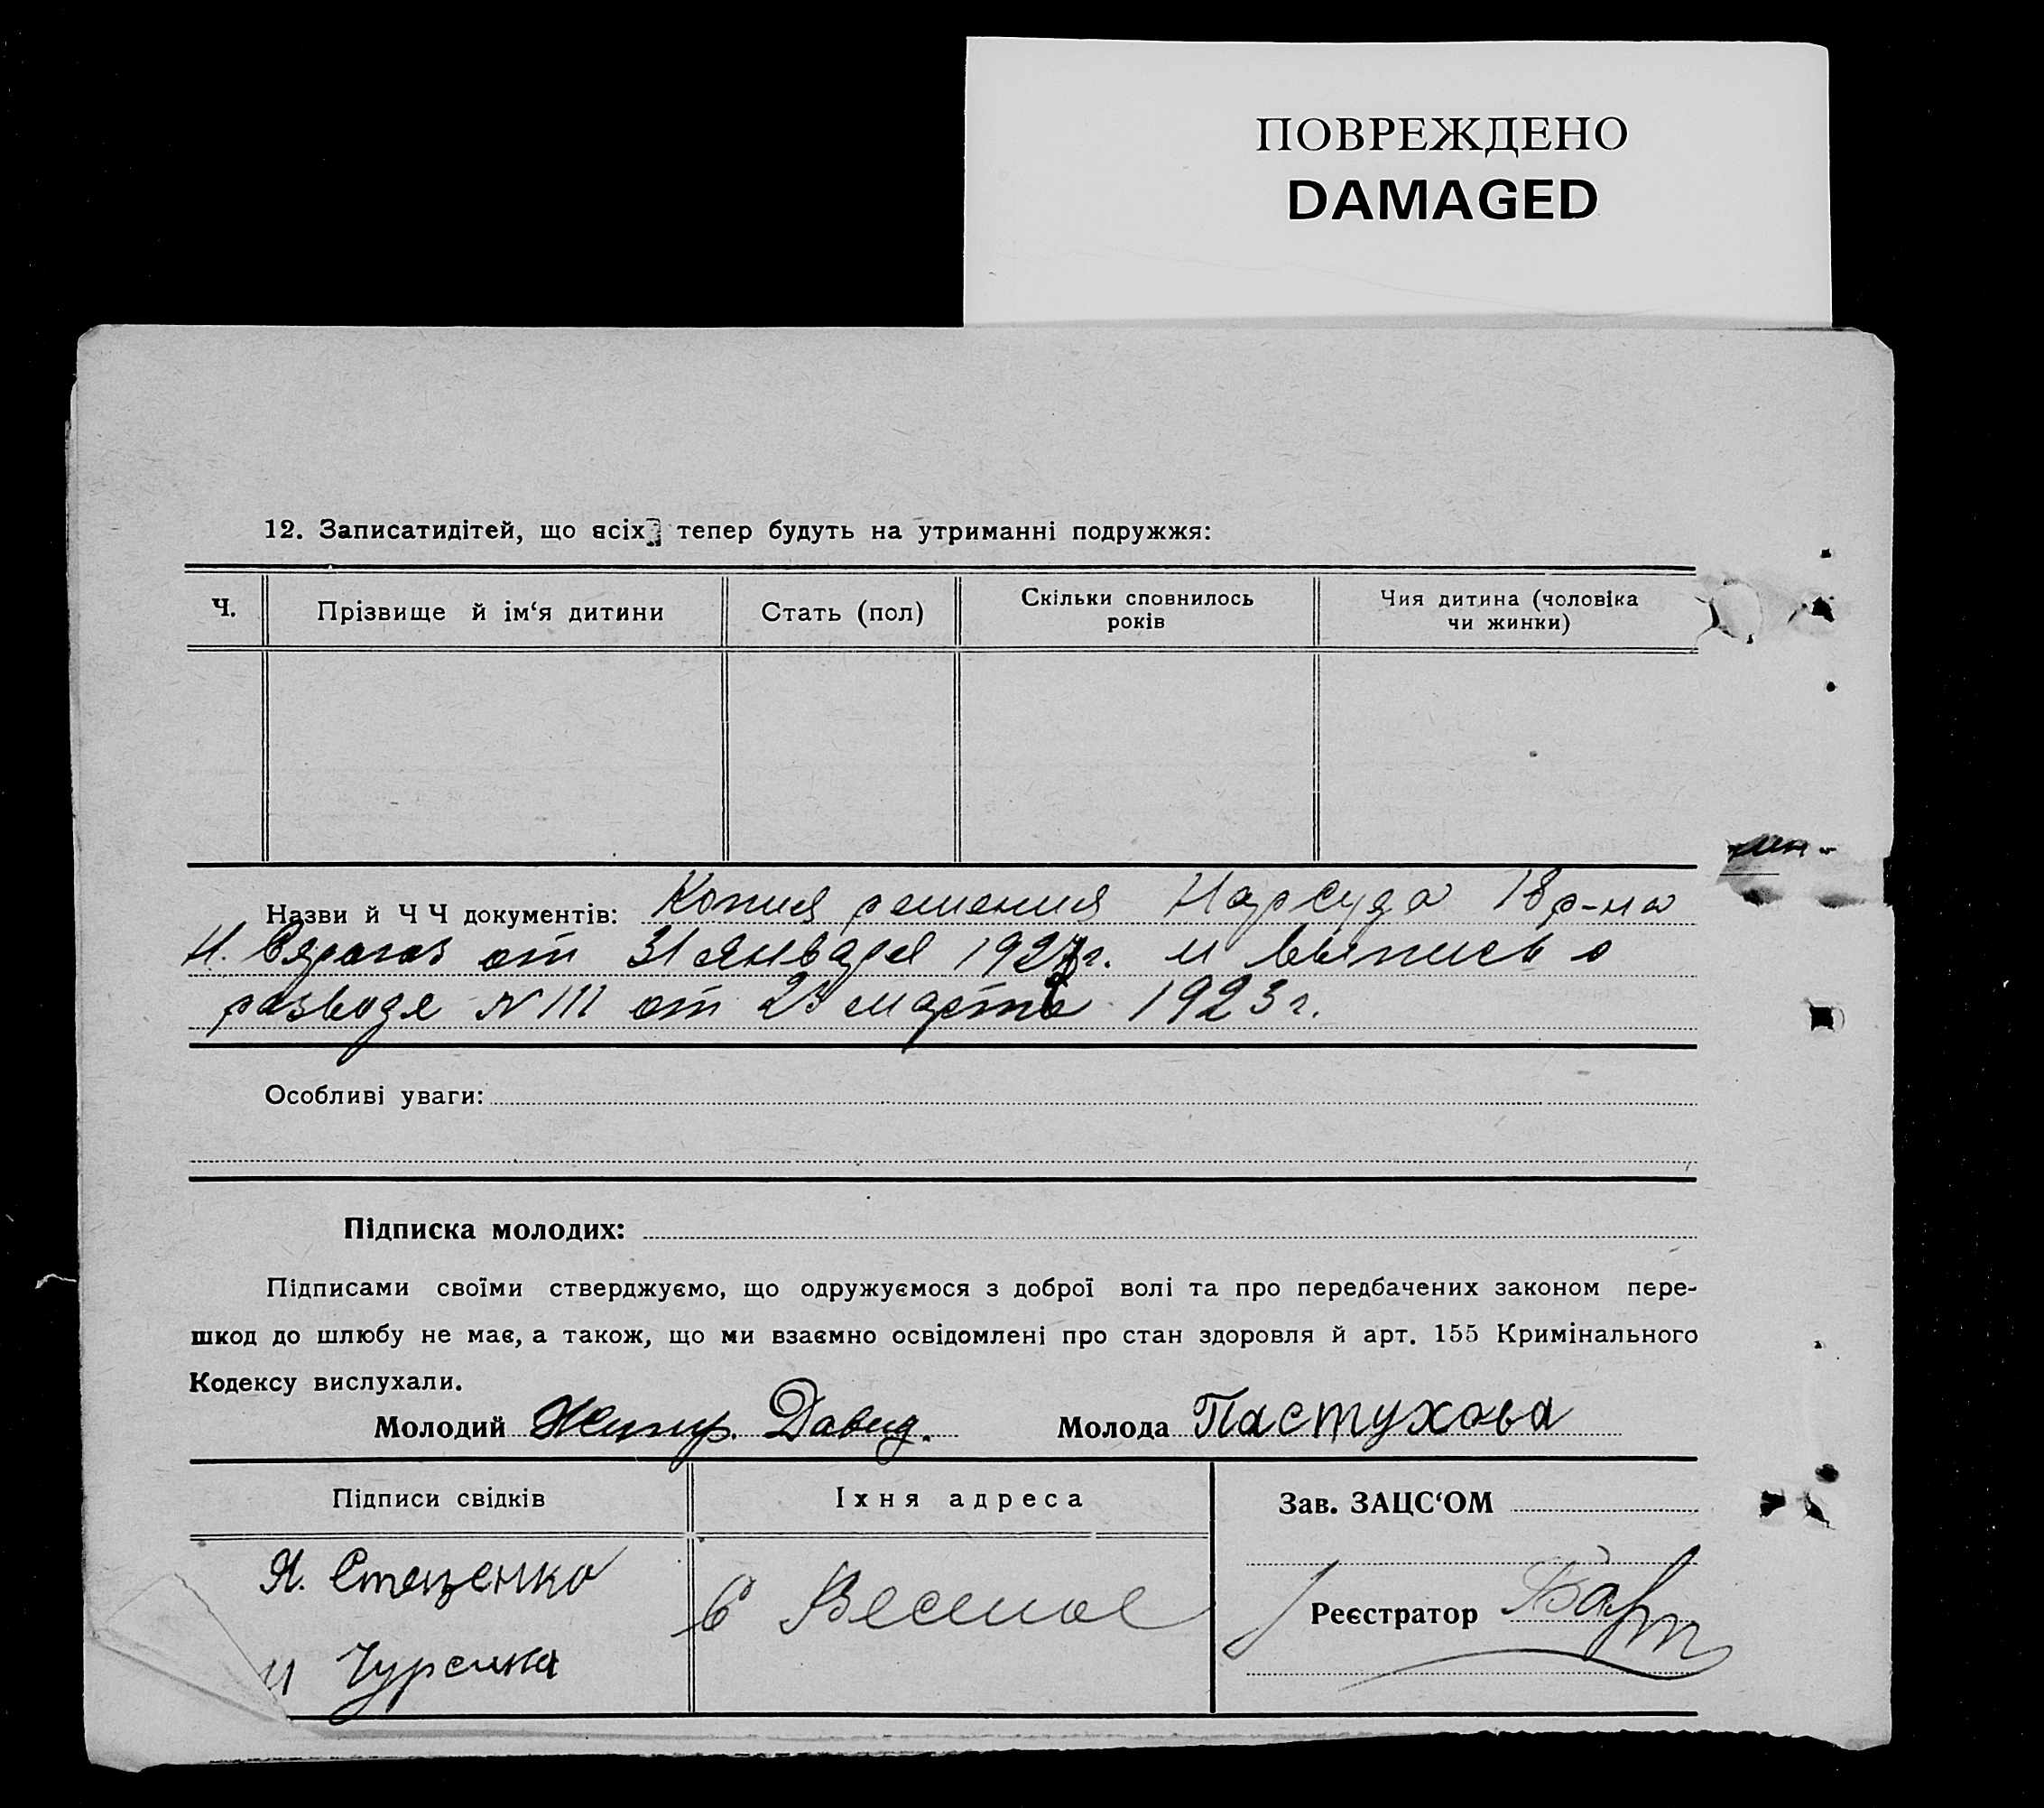 ПОВРЕЖДЕНО
DAMAGED
12. Записатидітей, що всіх тепер будуть на утриманні подружжя:
Ч. Прізвище й ім‘я дитини Стать (пол) Скільки сповнилось років Чия дитина (чоловіка чи жинки)
Назви й Ч Ч документів: Копия решения Нарсуда 18 р-на
от 31 января 1927 г. и выпись о
разводе N 111 от 23 марта 1923 г.
Особливі уваги:
Підписка молодих:
Підписами своїми стверджуємо, що одружуємося з доброї волі та про передбачених законом пере-
шкод до шлюбу не має, а також, що ми взаємно освідомлені про стан здоровля й арт. 155 Кримінального
Кодексу вислухали.
Молодий Давид. Молода Пастухова
Підписи свідків Їхня адреса Зав. ЗАЦС‘ОМ
Я. Стеценко
Реєстратор